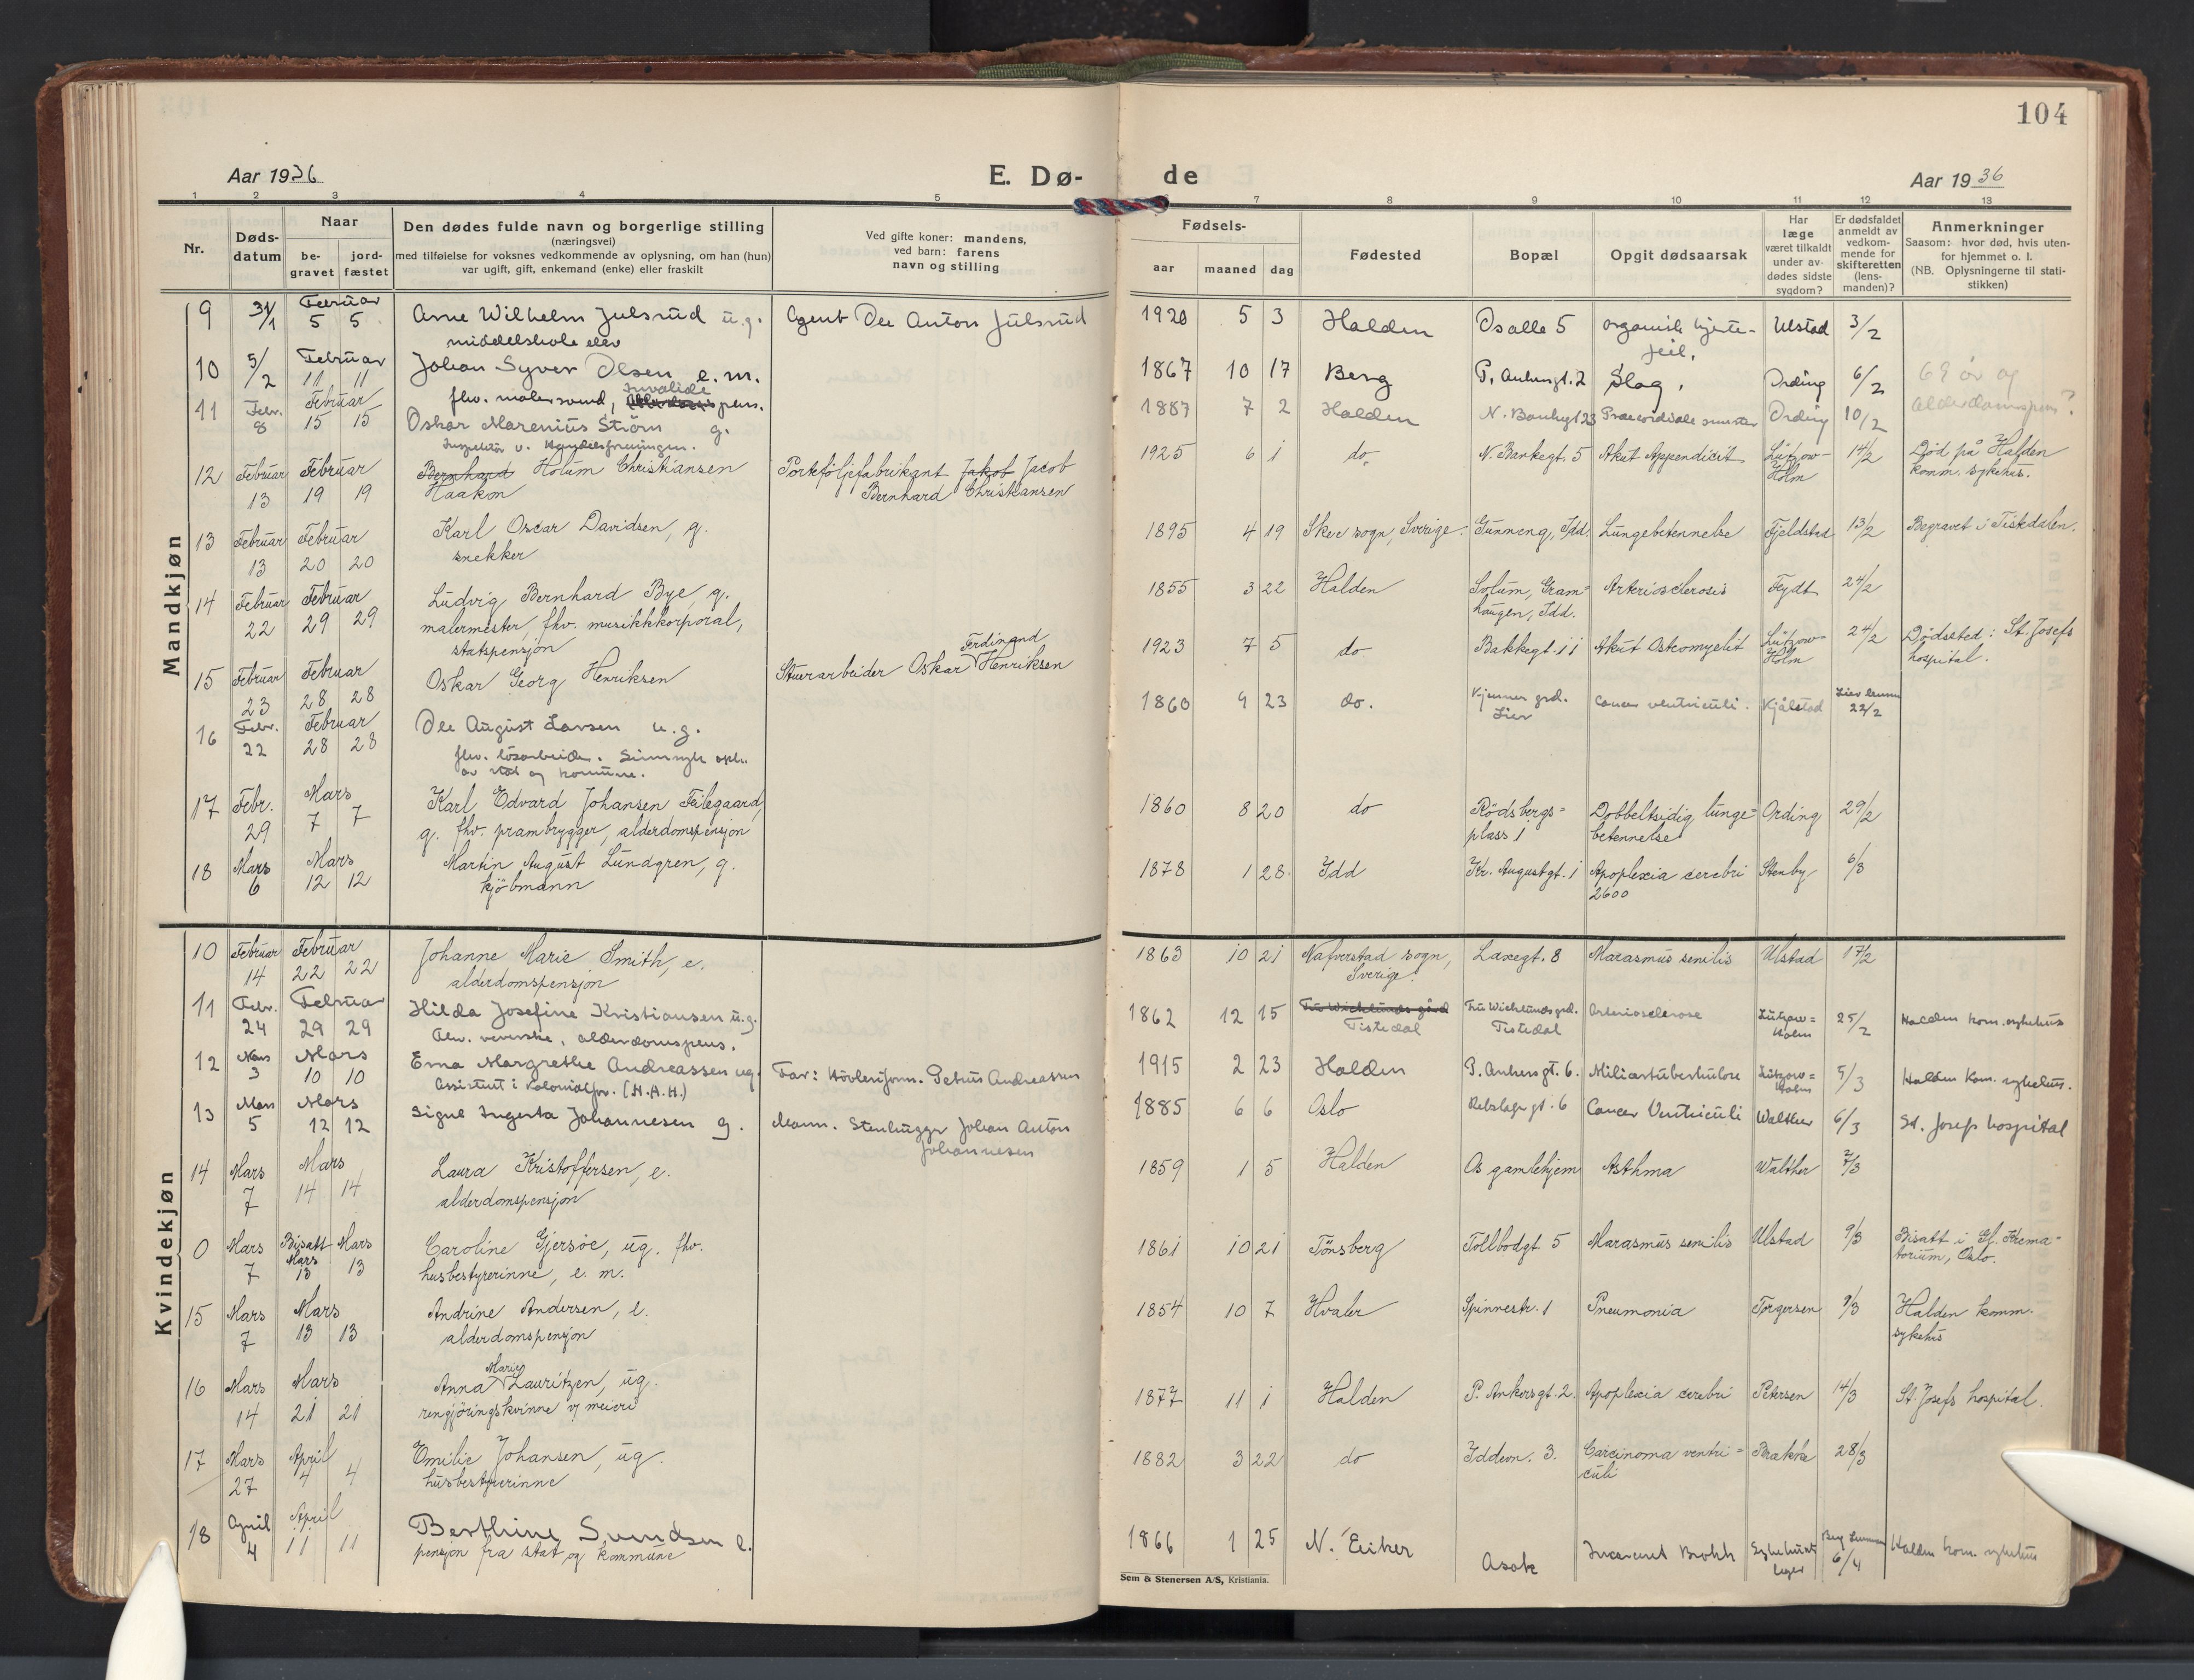 104
Aar 1936
E. Dø-
de
Aar 1936
1 2 3 4 5 7 8 9 10 11 12 13
Nr.
Døds-
datum
Naar
be-
gravet
jord-
fæstet
Den dødes fulde navn og borgerlige stilling
(næringsvei)
med tilføielse for voksnes vedkommende av oplysning, om han (hun)
var ugift, gift, enkemand (enke) eller fraskilt
Ved gifte koner: mandens,
ved barn: farens
navn og stilling
Fødsels-
aar maaned dag
Fødested
Bopæl
Opgit dødsaarsak
Har
læge
været tilkaldt
under av-
dødes sidste
sygdom?
Er dødsfaldet
anmeldt av
vedkom-
mende for
skifteretten
(lens-
manden)?
Anmerkninger
Saasom: hvor død, hvis uten-
for hjemmet o. l.
(NB. Oplysningerne til stati-
stikken)
Mandkjøn
9 31/1 Februar 5 5 Arne Wilhelm Julsrud u.g. Agent Ole Anton Julsrud 1920 5 3 Halden Osalle 5 organisk hjerte- Ulstad 3/2
middelskole elev feil.
10 5/2 Februar 11 11 Johan Syver Olsen e.m. 1867 10 17 Berg P. Ankersgt. 2 Slag. Ording 6/2 69 år og
fhv. malersvend, Invalide pens. alderdomspens?
11 Febr. 8 Februar 15 15 Oskar Marenius Strøm g. 1887 7 2 Halden N. Bankegt 23 Praecordiale smerter Ording 10/2
Inspektør v. Handelsforeningen.
12 Februar 13 Februar 19 19 Bernhard Holum Christiansen Porteføljefabrikant Jakob Jacob 1925 6 1 do. N. Bankegt. 5 Akut Appendicit Lützow- 14/2 Død på Halden
Haakon Bernhard Christiansen Holm komm. sykehus.
13 Februar 13 Februar 20 20 Karl Oscar Davidsen, g. 1895 4 19 Skee sogn, Sverige. Gunneng, Idd. Lungebetennelse Fjeldstad 13/2 Begravet i Tistedalen.
snekker
14 Februar 22 Februar 29 29 Ludvig Bernhard Bye, g. 1855 3 22 Halden Solum, Gram= Arteriosclerosis Feydt 24/2
malermester, fhv. musikkkorporal, haugen, Idd.
statspensjon
15 Februar 23 Februar 28 28 Oskar Georg Henriksen Stuerarbeider Oskar Ferdinand Henriksen 1923 7 5 do. Bakkegt. 11 Akut Osteomyelit Lützow- 24/2 Dødsted: St. Josefs
Holm hospital.
16 Febr. 22 Februar 28 28 Ole August Larsen u.g. 1860 9 23 do. Kjenner grd. Cancer ventriculi. Kjølstad Lier lensm 22/2
fhv. løsarbeider. Sinnsyk opl. Lier
av stat og kommune.
17 Febr. 29 Mars 7 7 Karl Edvard Johansen Feilegaard, 1860 8 20 do Rödsbergs= Dobbeltsidig lunge= Ording 29/2
g. fhv. prambrygger, alderdomspensjon plass 1 betennelse
18 Mars 6 Mars 12 12 Martin August Lundgren, g. 1878 1 28 Idd Kr. Augustgt. 1 Apoplexia cerebri Stenby 6/3
kjöbmann 2600
Kvindekjøn
10 Februar 14 Februar 22 22 Johanne Marie Smith, e. 1863 10 21 Nafverstad sogn, Laxegt. 8 Marasmus senilis Ulstad 17/2
alderdomspensjon Sverige.
11 Febr. 24 Februar 29 29 Hilda Josefine Kristiansen u.g. 1862 12 15 Fru Wicklunds gård Fru Wicklunds grd. Arteriosclerose Lützow= 25/2 Halden kom. sykehus
fhv. veverske, alderdomspens. Tistedal Tistedal Holm
12 Mars 3 Mars 10 10 Erna Margrethe Andreassen ug. Far: Høvleriform. Petrus Andreassen 1915 2 23 Halden P. Ankersgt. 6. Miliartuberkulose Lützow= 5/3 Halden Kom. sykehus.
Assistent i Kolonialfor. (H.A.H.) Holm
13 Mars 5 Mars 12 12 Signe Ingerta Johannesen g. Mann. Stenhugger Johan Anton 1885 6 6 Oslo Rebslager gt. 6 Cancer Ventriculi Walther 6/3 St. Josep hospital
Johannesen
14 Mars 7 Mars 14 14 Laura Kristoffersen, e. 1859 1 5 Halden Os gamlehjem Asthma Walther 7/3
alderdomspensjon
0 Mars 7 Bisatt Mars 13 Mars 13 Caroline Gjersöe, ug. fhv. 1861 10 21 Tönsberg Tollbodgt. 5 Marasmus senilis Ulstad 9/3 Bisatt i Gl. Krema=
husbestyrerinne, e. m. torium, Oslo.
15 Mars 7 Mars 13 13 Andrine Andersen, e. 1854 10 7 Hvaler Spinnestr. 1 Pneumonia Torgersen 9/3 Halden komm.
alderdomspensjon sykehus
16 Mars 14 Mars 21 21 Anna Marie Lauritzen, ug. 1877 11 1 Halden P. Ankersgt. 2. Apoplexia cerebri Petersen 14/3 St. Josefs hospital.
rengjöringskvinne v/ meieri
17 Mars 27 April 4 4 Emilie Johansen, ug. 1882 3 22 do Iddevn. 3. Carcinoma ventri= 28/3
husbestyrerinne culi
18 April 4 April 11 11 Berthine Svendsen e. 1866 1 25 N. Eiker Asak Incarcerert Brokk Sykehusets 6/4 Halden kom. sykehus
pensjon fra stat og kommune leger
Sem & Stenersen A/S, Kristiania.